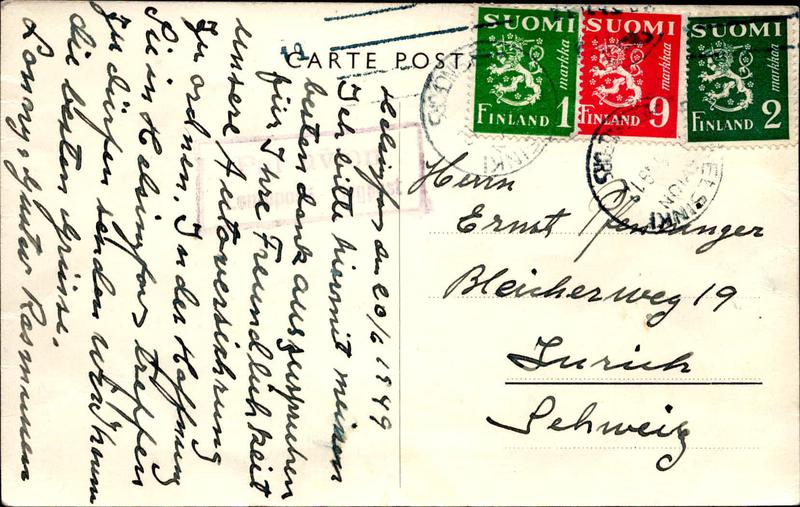 CARTE POSTALE
SUOMI
markkaa
FINLAND 1
SUOMI
markkaa
FINLAND 9
SUOMI
markkaa
FINLAND 2
HELSINKI
HELSINKI
Helsingfors den 20/6 1949
Ich bitte hiermit meinen
besten dank auszusprechen
für Ihre Freundlichkeit
unsere Autoversichrung
zu ordnen. In der Hoffnung
Sie in Helsingfors treffen
zu dürfen senden wir Ihnen
die besten Grüsse.
Herrn
Ernst
Bleicherweg 19
Zurich
Schweiz